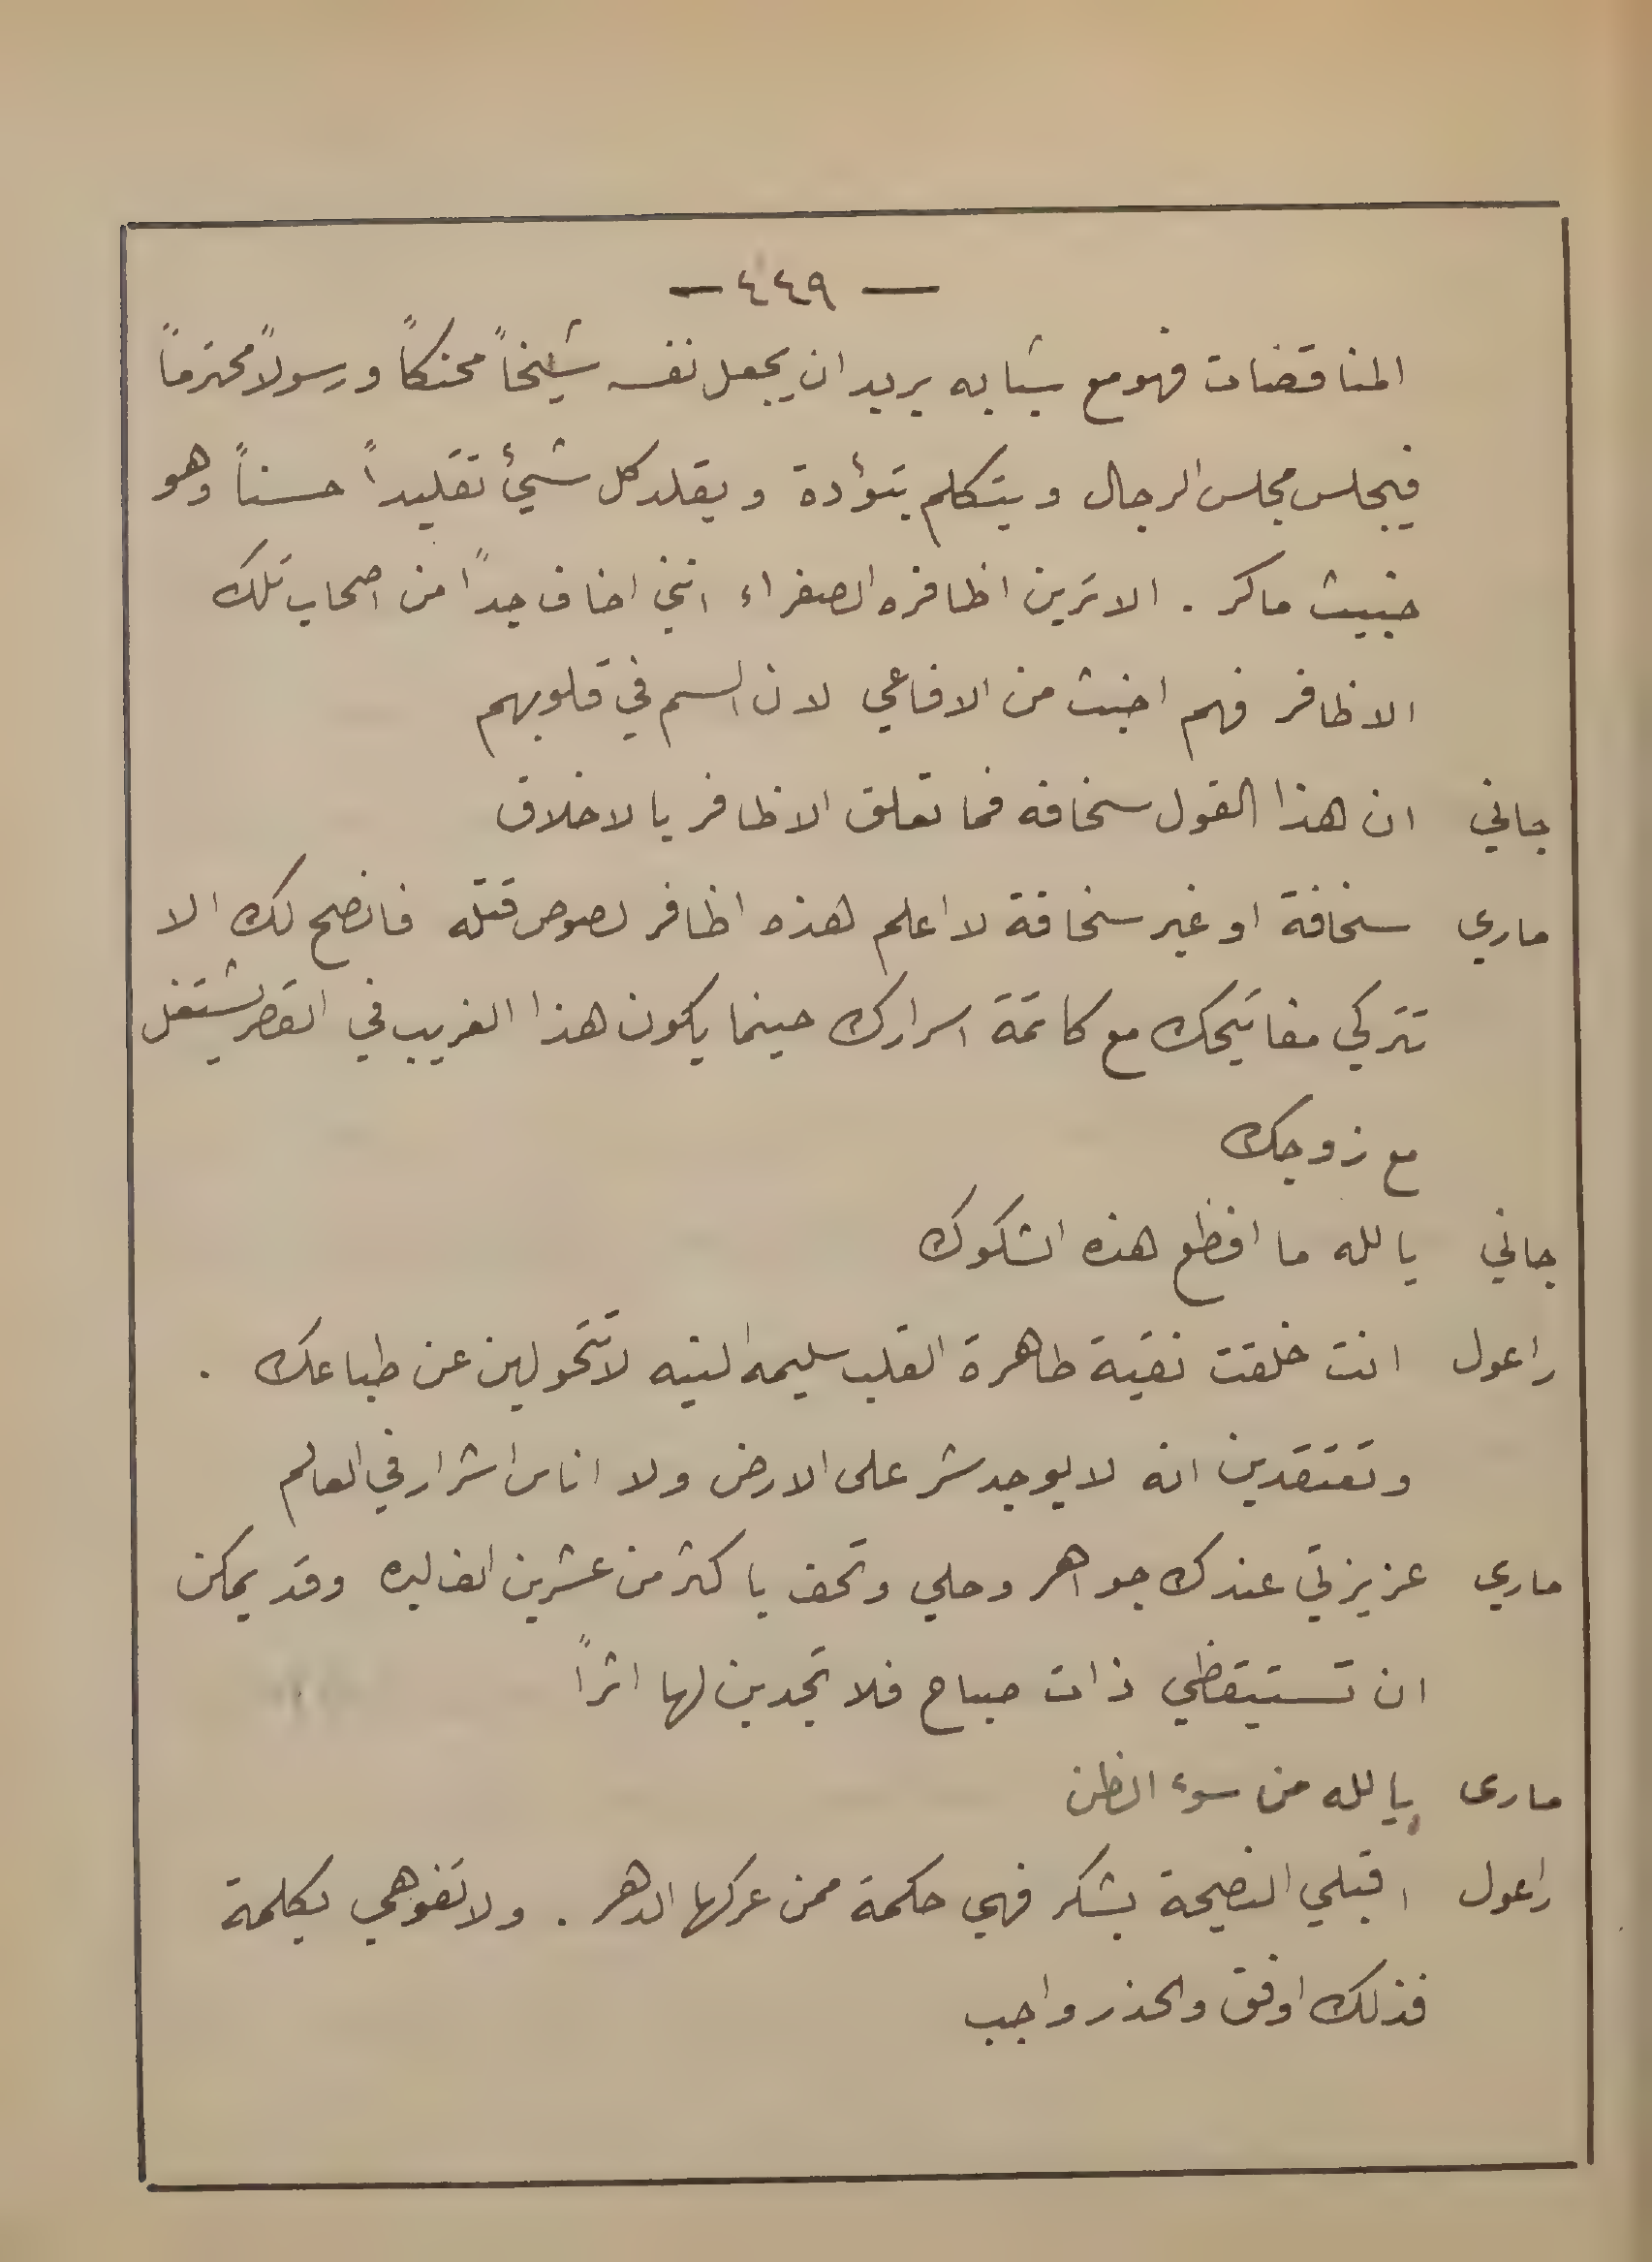 — ٤٤٩ —
المناقضات فهو مع شبابه يريد ان يجعل نفسه شيخاً محنكاً ورسولاً محترماً
فيجلس مجلس الرجال ويتكلم بتؤدة ويقلد كل شيئ تقليداً حسناً وهو
خبيث ماكر . الا ترين اظافره الصفراء انني اخاف جداً من اصحاب تلك
الاظافر فهم اخبث من الافاعي لان السم في قلوبهم
جاني ان هذا القول سخافه فما تعلق الاظافر بالاخلاق
ماري سخافة او غير سخافة لا اعلم هذه اظافر لصوص قتله فانصح لك الا
تتركي مفاتيحك مع كاتمة اسرارك حينما يكون هذا الغريب في القصر يشتغل
مع زوجك
جاني يالله ما افظع هذه الشكوك
راعول انت خلقت نقية طاهرة القلب سليمه النيه لا تتحولين عن طباعك .
وتعتقدين انه لا يوجد شر على الارض ولا اناس اشرار في العالم
ماري عزيزتي عندك جواهر وحلي وتحف باكثر من عشرين الف ليره وقد يمكن
ان تستيقظي ذات صباح فلا تجدين لها اثراً
مارى يالله من سوء الظن
راعول اقبلي النصيحة بشكر فهي حكمة ممن عركها الدهر . ولا تفوهي بكلمة
فذلك اوفق والحذر واجب